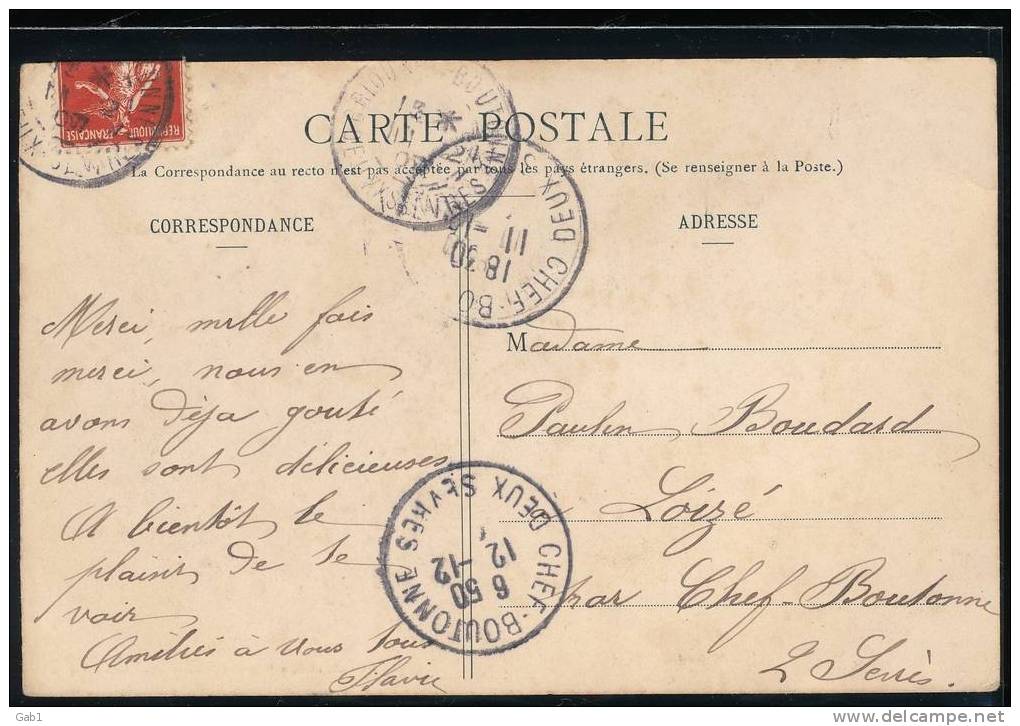 RÉPUBLIQUE FRANÇAISE
CARTE POSTALE
La Correspondance au recto n'est pas acceptée par tous les pays étrangers. (Se renseigner à la Poste.)
CORRESPONDANCE
Merci, mille fois
merci, nous en
avons déja gouté
elles sont délicieuses
A bientôt le
plaisir de te
voir
Amitiés à vous tous
Flavie
ADRESSE
Madame
Paulin Boudard
Loizé
par Chef-Boutonne
2 Sevrès.
CHEF-BO DEUX S
18 30
11
CHEF-BOUTONNE DEUX SEVRES
6 50
12 -12
Gab1
www.delcampe.net